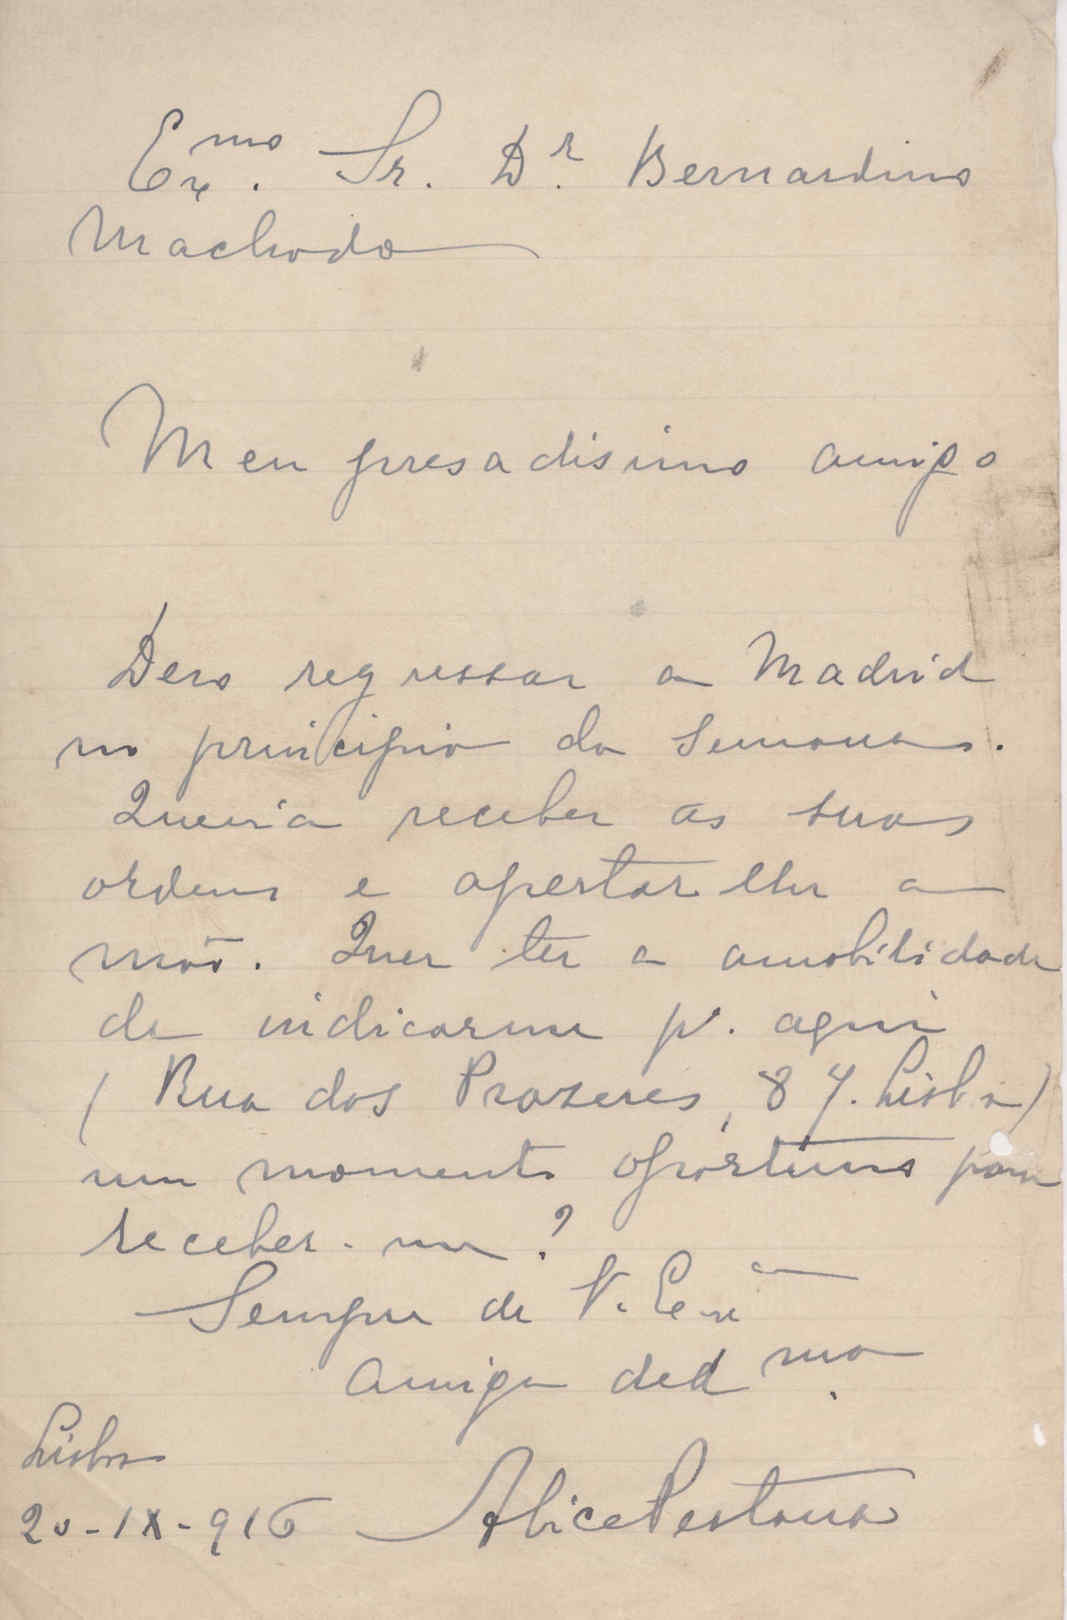 Ex.mo Sr. Dr. Bernardino
Machado
Meu presadisimo amigo
Devo regressar a Madrid
no principio da semana.
Queria receber as suas
ordens e apertar lhe a
mão. Quer ter a amabilidade
de indicarme pa. aqui
(Rua dos Prazeres, 87. Lisboa)
um momento oportuno para
receber-me?
Sempre de V. Exa
amiga dedma.
Lisboa
20-IX-916 Alice Pestana